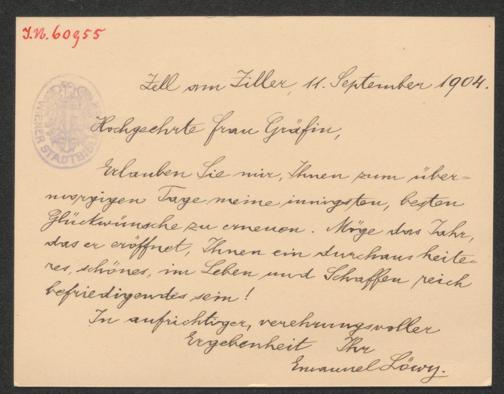 J.N. 60955
Zell am Ziller, 11. September 1904.
WIENER STADTBIBL
Hochgeehrte Frau Gräfin,
Erlauben Sie mir, Ihnen zum über-
morgigen Tage meine innigsten, besten
Glückwünsche zu erneuen. Möge das Jahr,
das er eröffnet, Ihnen ein durchaus heite-
res, schönes, im Leben und Schaffen reich
befriedigendes sein!
In aufrichtiger, verehrungsvoller
Ergebenheit Ihr
Emanuel Löwy.